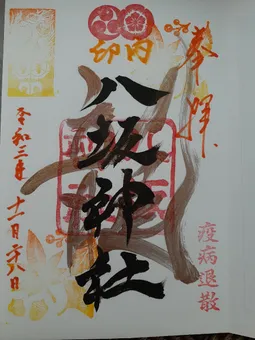 奉拝
印内
八坂神社
疫病退散
令和三年
十一月二十八日